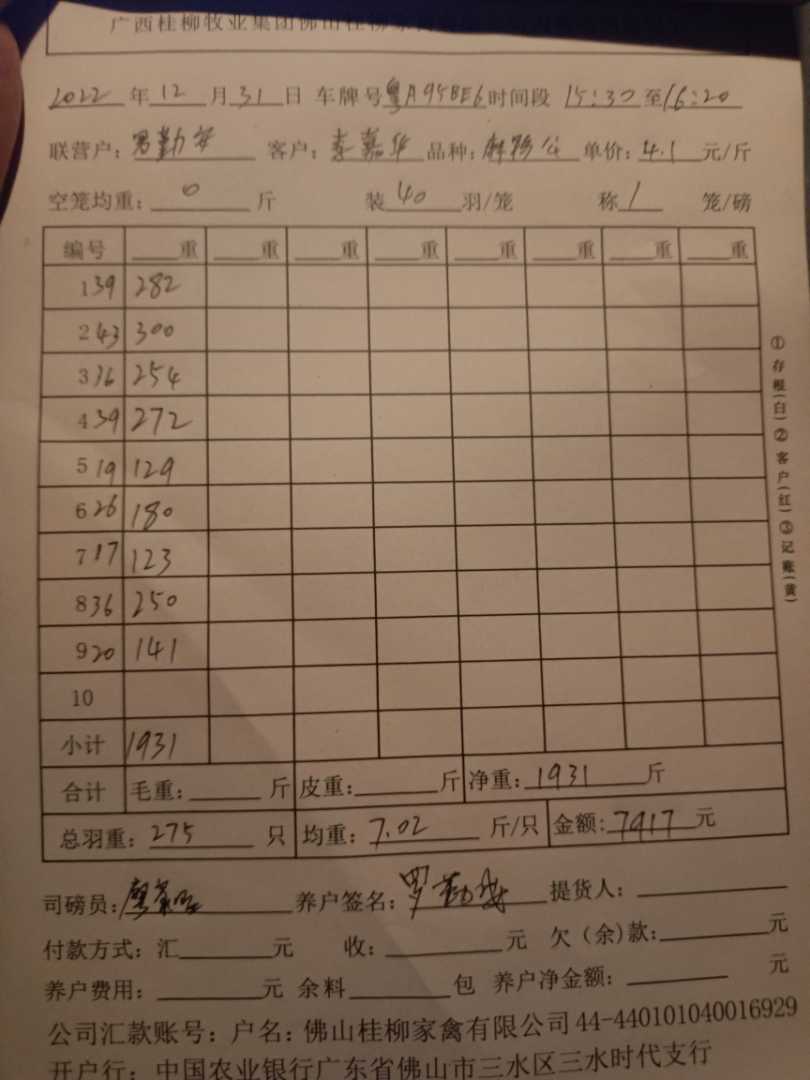 广西桂柳牧业集团佛山桂柳家
2022 年 12 月 31 日 车牌号 粤A95BE6 时间段 15:30 至 16:20
联营户: 罗勤 客户: 嘉华 品种: 麻 公 单价: 4.1 元/斤
空笼均重: 0 斤 装 40 羽/笼 称 1 笼/磅
编号 重 重 重 重 重 重 重 重
1 39 282
2 43 300
3 36 254
4 39 272
5 19 129
6 26 180
7 17 123
8 36 250
9 20 141
10
小计 1931
合计 毛重: 斤 皮重: 斤 净重: 1931 斤
总羽重: 275 只 均重: 7.02 斤/只 金额: 7917 元
司磅员: 养户签名: 罗勤 提货人:
付款方式: 汇 元 收: 元 欠(余)款: 元
养户费用: 元 余料 包 养户净金额: 元
公司汇款账号: 户名: 佛山桂柳家禽有限公司 44-440101040016929
开户行: 中国农业银行广东省佛山市三水区三水时代支行
①存根(白)②客户(红)③记账(黄)